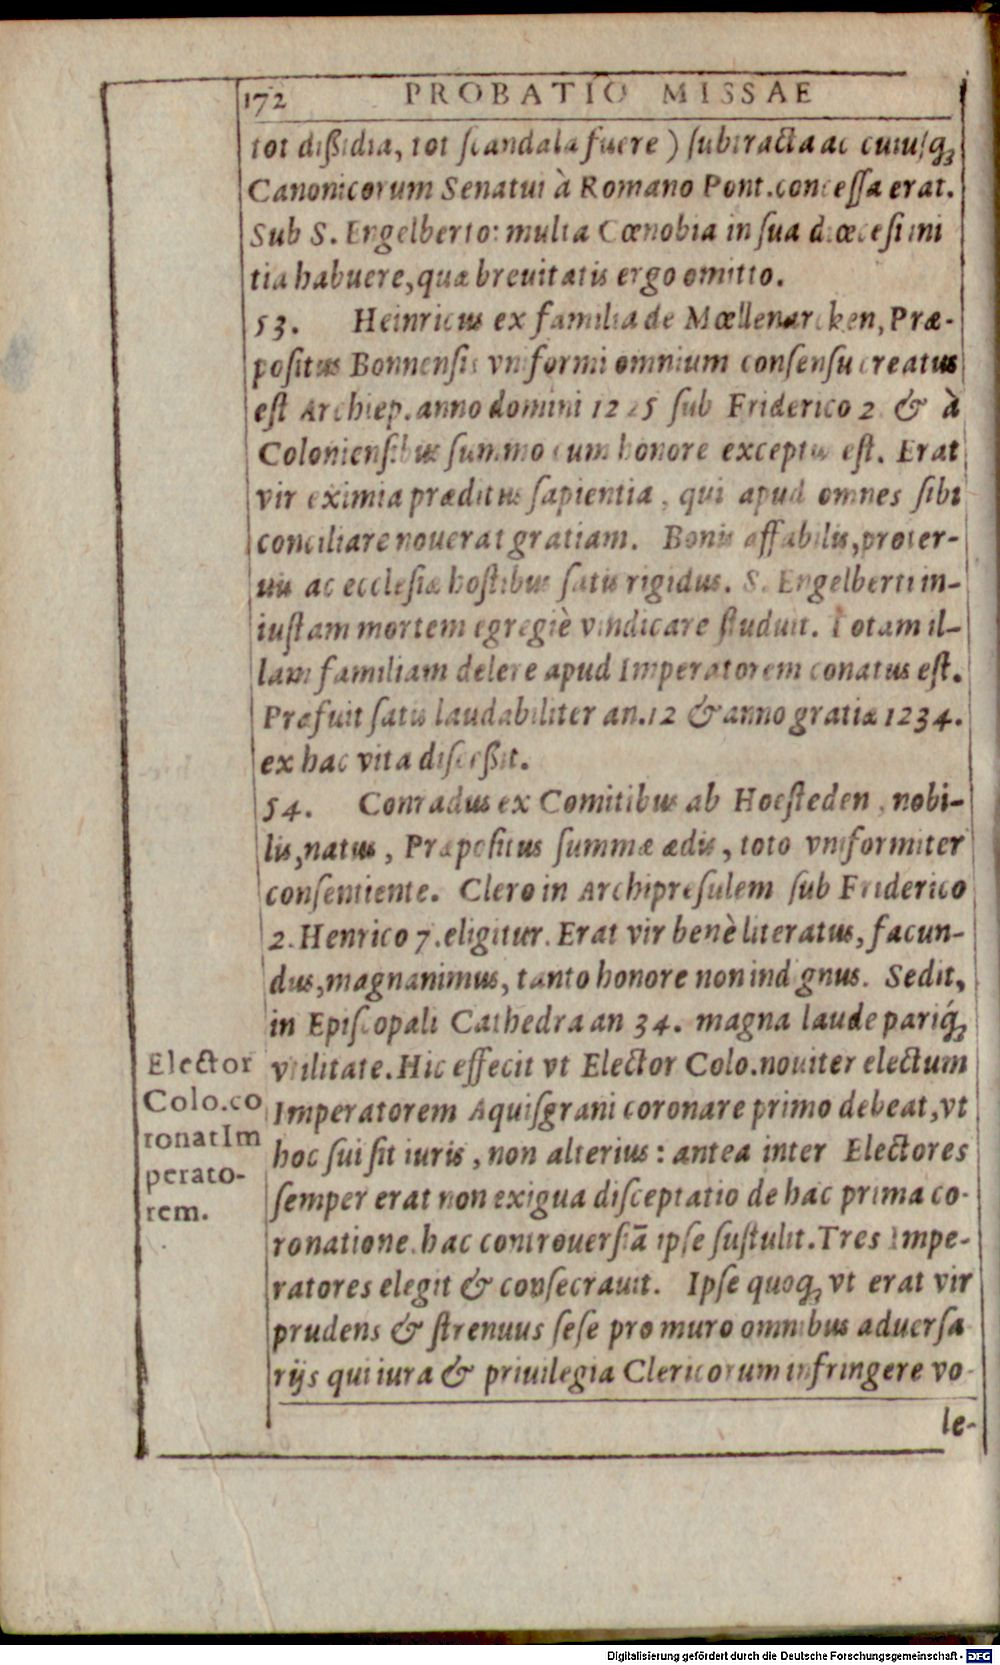 172 PROBATIO MISSAE
tot dißidia, tot scandala fuere) subtracta ac cuiusq́;
Canonicorum Senatui à Romano Pont. concessa erat.
Sub S. Engelberto: multa Cœnobia in sua diœcesi ini
tia habuere, quæ breuitatis ergo omitto.
53. Heinricus ex familia de Mœllenarcken, Præ-
positus Bonnensis vniformi omnium consensu creatus
est Archiep. anno domini 1225 sub Friderico 2. & à
Coloniensibus summo cum honore exceptus est. Erat
vir eximia præditus sapientia, qui apud omnes sibi
conciliare nouerat gratiam. Bonis affabilis, proter-
uis ac ecclesiæ hostibus satis rigidus. S. Engelberti in-
iustam mortem egregiè vindicare studuit. Totam il-
lam familiam delere apud Imperatorem conatus est.
Præfuit satis laudabiliter an. 12 & anno gratiæ 1234.
ex hac vita discessit.
54. Conradus ex Comitibus ab Hoesteden, nobi-
lis, natus, Præpositus summæ ædis, toto vniformiter
consentiente. Clero in Archipresulem sub Friderico
2. Henrico 7. eligitur. Erat vir benè literatus, facun-
dus, magnanimus, tanto honore non indignus. Sedit,
in Episcopali Cathedra an 34. magna laude pariq́;
vtilitate. Hic effecit vt Elector Colo. nouiter electum
Imperatorem Aquisgrani coronare primo debeat, vt
hoc sui sit iuris, non alterius: antea inter Electores
semper erat non exigua disceptatio de hac prima co-
ronatione. hac controuersiã ipse sustulit. Tres Impe-
ratores elegit & consecrauit. Ipse quoq; vt erat vir
prudens & strenuus sese pro muro omnibus aduersa
rijs qui iura & priuilegia Clericorum infringere vo-
le-
Elector
Colo.co
ronat Im
perato-
rem.
Digitalisierung gefördert durch die Deutsche Forschungsgemeinschaft - DFG